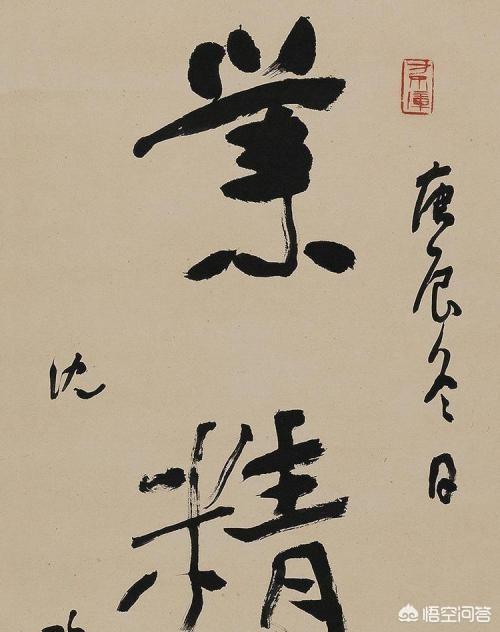 庚辰冬日
業精
沈
悟空问答